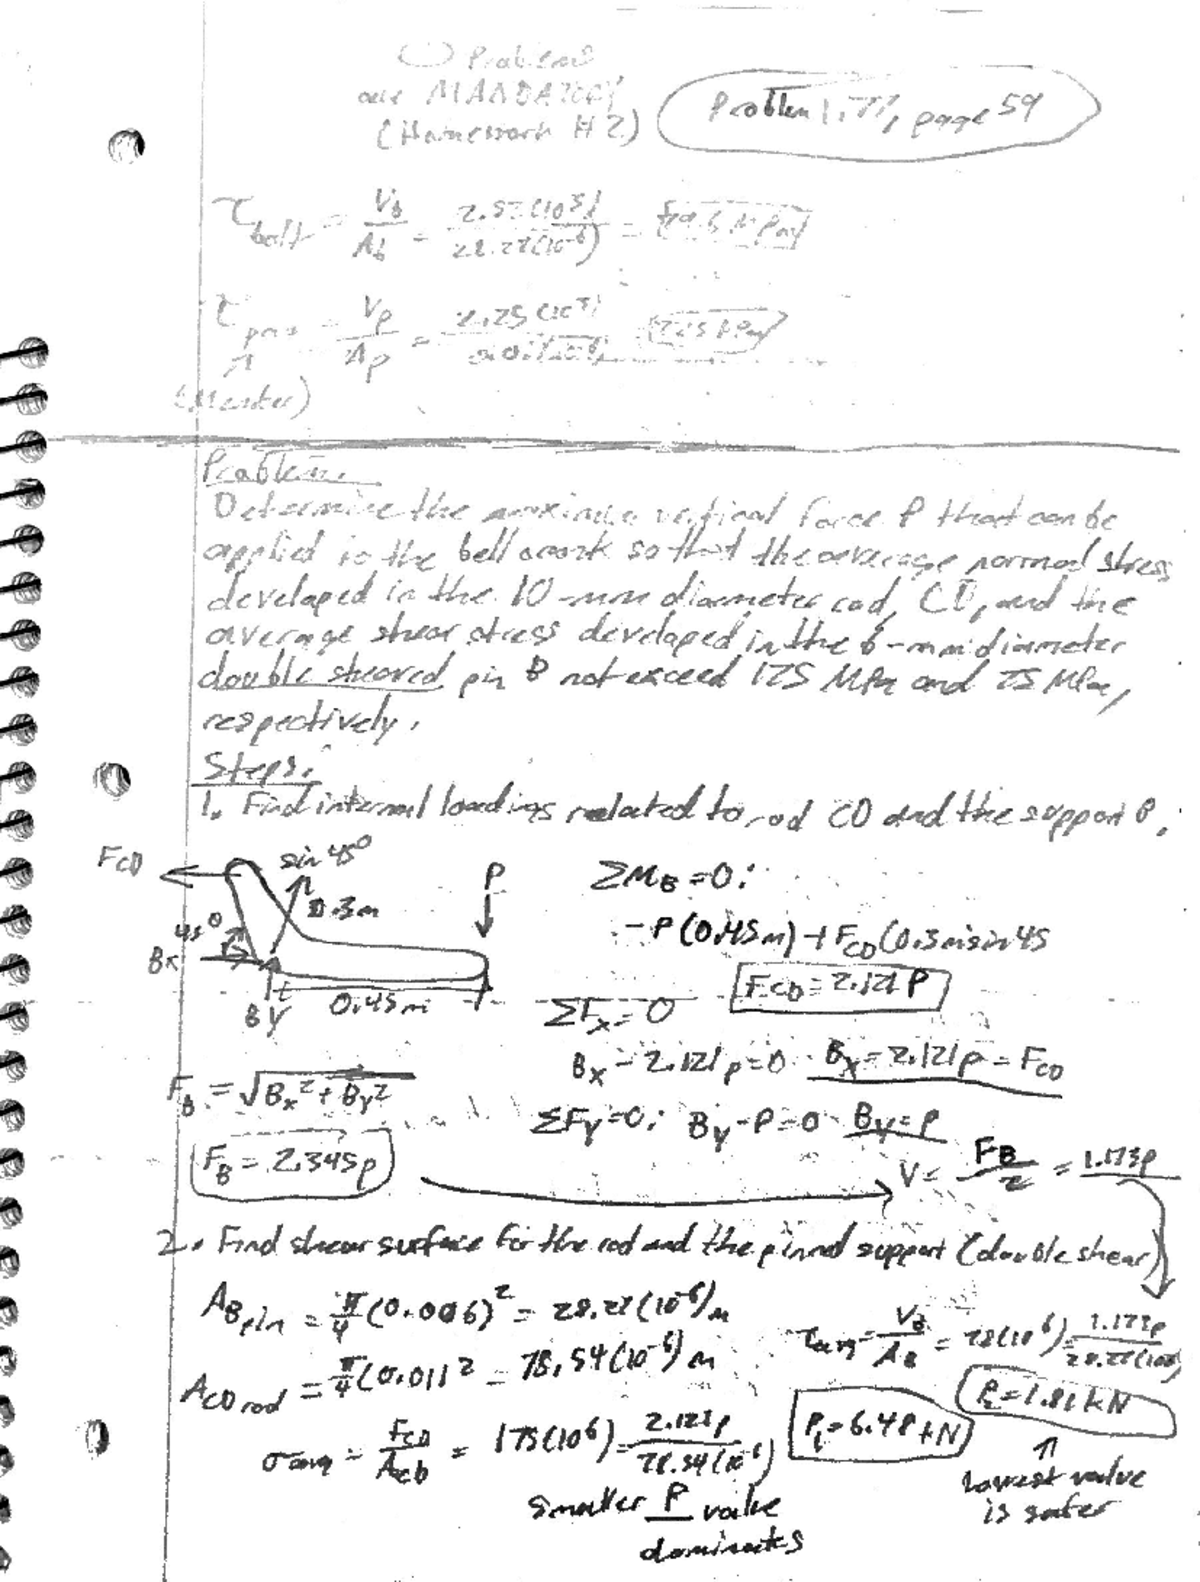 Problems
are MANDATORY
(Homework #2)
Problem 1.77, page 59
τbolt = Vb/Ab = 2.25(10³)/28.27(10⁻⁶) = 79.6 MPa
τ = Vp/Ap = 2.25(10³)
Problem:
Determine the maximum vertical force P that can be
applied to the bell crank so that the average normal stress
developed in the 10-mm diameter rod, CD, and the
average shear stress developed in the 6-mm diameter
double sheared pin B not exceed 175 MPa and 75 MPa,
respectively.
Steps:
1. Find internal loadings related to rod CD and the support B.
FCD
sin 45°
0.3m
P
45°
Bx
By
0.45m
ΣMB = 0:
-P(0.45m) + FCD(0.3m sin 45
FCD = 2.121P
ΣFx = 0
Bx - 2.121p = 0 Bx = 2.121p = FCD
FB = √Bx² + By²
ΣFy = 0: By - P = 0 By = P
FB = 2.345p
V = FB/2 = 1.173p
2. Find shear surface for the rod and the pinned support (double shear)
AB pin = π/4 (0.006)² = 28.27(10⁻⁶) m
ACD rod = π/4 (0.01)² = 78.54(10⁻⁶) m
τavg = VB/AB = 75(10⁶) = 1.173p
σavg = FCD = 175(10⁶) = 2.121p/78.54(10⁻⁶)
P = 6.48 kN
P = 1.81 kN
↑
Lowest value
is safer
smaller P value
dominates